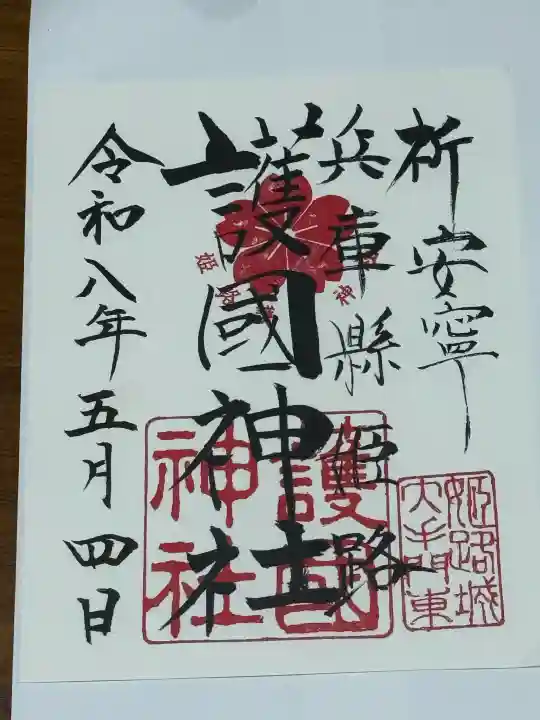 祈安寧
兵庫縣姫路
護國神社
令和八年五月四日
護國
神社
姫路城
大手門東